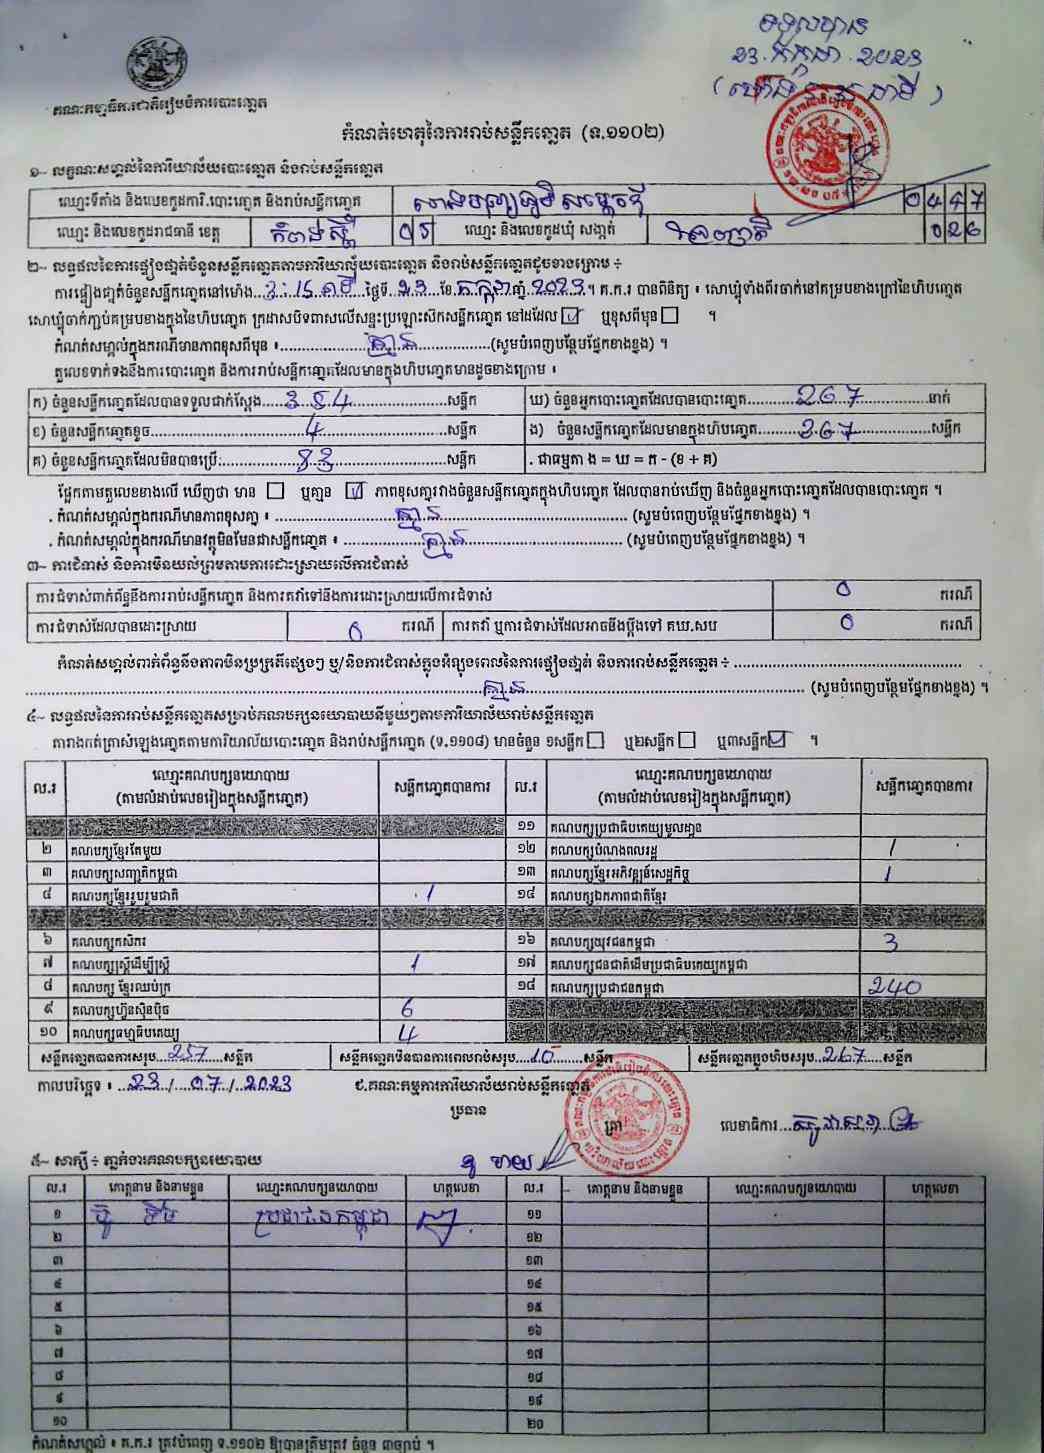 ទទួលបាន
23.កក្កដា.2023
គណៈកម្មាធិការជាតិរៀបចំការបោះឆ្នោត
កំណត់ហេតុនៃការរាប់សន្លឹកឆ្នោត (ទ.១១០២)
១~ លក្ខណៈសម្គាល់នៃការិយាល័យបោះឆ្នោត និងរាប់សន្លឹកឆ្នោត
ឈ្មោះទីតាំង និងលេខកូដការិ.បោះឆ្នោត និងរាប់សន្លឹកឆ្នោត 0 4 4 7
ឈ្មោះ និងលេខកូដរាជធានី ខេត្ត កំពង់ស្ពឺ 0 5 ឈ្មោះ និងលេខកូដឃុំ សង្កាត់ 0 2 6
២~ លទ្ធផលនៃការផ្ទៀងផ្ទាត់ចំនួនសន្លឹកឆ្នោតតាមការិយាល័យបោះឆ្នោត និងរាប់សន្លឹកឆ្នោតដូចខាងក្រោម ៖
ការផ្ទៀងផ្ទាត់ចំនួនសន្លឹកឆ្នោតនៅម៉ោង 3:15 នាទី ថ្ងៃទី 23 ខែ កក្កដា ឆ្នាំ 2023 ។ គ.ក.រ បានពិនិត្យ ៖ សោឃ្លុំទាំងពីរចាក់នៅគម្របខាងក្រៅនៃហិបឆ្នោត
សោឃ្លុំចាក់ភ្ជាប់គម្របខាងក្នុងនៃហិបឆ្នោត ក្រដាសបិទពាសលើសន្ទះប្រឡោះស៊កសន្លឹកឆ្នោត នៅដដែល ☑ ឬខុសពីមុន ☐ ។
កំណត់សម្គាល់ក្នុងករណីមានភាពខុសពីមុន ៖ គ្មាន (សូមបំពេញបន្ថែមផ្នែកខាងខ្នង) ។
តួលេខទាក់ទងនឹងការបោះឆ្នោត និងការរាប់សន្លឹកឆ្នោតដែលមានក្នុងហិបឆ្នោតមានដូចខាងក្រោម ៖
ក) ចំនួនសន្លឹកឆ្នោតដែលបានទទួលជាក់ស្តែង 354 សន្លឹក ឃ) ចំនួនអ្នកបោះឆ្នោតដែលបានបោះឆ្នោត 267 នាក់
ខ) ចំនួនសន្លឹកឆ្នោតខូច 4 សន្លឹក ង) ចំនួនសន្លឹកឆ្នោតដែលមានក្នុងហិបឆ្នោត 267 សន្លឹក
គ) ចំនួនសន្លឹកឆ្នោតដែលមិនបានប្រើ: 83 សន្លឹក . ជាធម្មតា ង = ឃ = ក - (ខ + គ)
ផ្អែកតាមតួលេខខាងលើ ឃើញថា មាន ☐ ឬគ្មាន ☑ ភាពខុសគ្នារវាងចំនួនសន្លឹកឆ្នោតក្នុងហិបឆ្នោត ដែលបានរាប់ឃើញ និងចំនួនអ្នកបោះឆ្នោតដែលបានបោះឆ្នោត ។
. កំណត់សម្គាល់ក្នុងករណីមានភាពខុសគ្នា ៖ គ្មាន (សូមបំពេញបន្ថែមផ្នែកខាងខ្នង) ។
. កំណត់សម្គាល់ក្នុងករណីមានវត្ថុមិនមែនជាសន្លឹកឆ្នោត ៖ គ្មាន (សូមបំពេញបន្ថែមផ្នែកខាងខ្នង) ។
៣~ ការជំទាស់ និងការមិនយល់ព្រមតាមការដោះស្រាយលើការជំទាស់
ការជំទាស់ពាក់ព័ន្ធនឹងការរាប់សន្លឹកឆ្នោត និងការតវ៉ាទៅនឹងការដោះស្រាយលើការជំទាស់ 0 ករណី
ការជំទាស់ដែលបានដោះស្រាយ 0 ករណី ការតវ៉ា ឬការជំទាស់ដែលអាចនឹងប្តឹងទៅ គឃ.សប 0 ករណី
កំណត់សម្គាល់ពាក់ព័ន្ធនឹងភាពមិនប្រក្រតីផ្សេងៗ ឬ/និងការជំទាស់ក្នុងអំឡុងពេលនៃការផ្ទៀងផ្ទាត់ និងការរាប់សន្លឹកឆ្នោត ៖
គ្មាន (សូមបំពេញបន្ថែមផ្នែកខាងខ្នង) ។
៤~ លទ្ធផលនៃការរាប់សន្លឹកឆ្នោតសម្រាប់គណបក្សនយោបាយនីមួយៗតាមការិយាល័យរាប់សន្លឹកឆ្នោត
តារាងកត់ត្រាសំឡេងឆ្នោតតាមការិយាល័យបោះឆ្នោត និងរាប់សន្លឹកឆ្នោត (ទ.១១០៨) មានចំនួន ១សន្លឹក ☐ ឬ២សន្លឹក ☐ ឬ៣សន្លឹក ☑ ។
ល.រ ឈ្មោះគណបក្សនយោបាយ (តាមលំដាប់លេខរៀងក្នុងសន្លឹកឆ្នោត) សន្លឹកឆ្នោតបានការ ល.រ ឈ្មោះគណបក្សនយោបាយ (តាមលំដាប់លេខរៀងក្នុងសន្លឹកឆ្នោត) សន្លឹកឆ្នោតបានការ
១១ គណបក្សប្រជាធិបតេយ្យមូលដ្ឋាន
២ គណបក្សខ្មែរតែមួយ ១២ គណបក្សបំណងពលរដ្ឋ 1
៣ គណបក្សសញ្ជាតិកម្ពុជា ១៣ គណបក្សខ្មែរអភិវឌ្ឍន៍សេដ្ឋកិច្ច 1
៤ គណបក្សខ្មែររួបរួមជាតិ 1 ១៤ គណបក្សឯកភាពជាតិខ្មែរ
៦ គណបក្សកសិករ ១៦ គណបក្សយុវជនកម្ពុជា 3
៧ គណបក្សស្ត្រីដើម្បីស្ត្រី 1 ១៧ គណបក្សជនជាតិដើមប្រជាធិបតេយ្យកម្ពុជា
៨ គណបក្ស ខ្មែរឈប់ក្រ ១៨ គណបក្សប្រជាជនកម្ពុជា 240
៩ គណបក្សហ៊្វុនស៊ិនប៉ិច 6
១០ គណបក្សធម្មាធិបតេយ្យ 4
សន្លឹកឆ្នោតបានការសរុប 257 សន្លឹក សន្លឹកឆ្នោតមិនបានការពេលរាប់សរុប 10 សន្លឹក សន្លឹកឆ្នោតក្នុងហិបសរុប 267 សន្លឹក
កាលបរិច្ឆេទ ៖ 23 / 07 / 2023 ជ.គណៈកម្មការការិយាល័យរាប់សន្លឹកឆ្នោត
ប្រធាន
ត្រា លេខាធិការ
៥~ សាក្សី ៖ ភ្នាក់ងារគណបក្សនយោបាយ
ល.រ គោត្តនាម និងនាមខ្លួន ឈ្មោះគណបក្សនយោបាយ ហត្ថលេខា ល.រ គោត្តនាម និងនាមខ្លួន ឈ្មោះគណបក្សនយោបាយ ហត្ថលេខា
១ ប្រជាជនកម្ពុជា ១១
២ ១២
៣ ១៣
៤ ១៤
៥ ១៥
៦ ១៦
៧ ១៧
៨ ១៨
៩ ១៩
១០ ២០
កំណត់សម្គាល់ ៖ គ.ក.រ ត្រូវបំពេញ ទ.១១០២ ឱ្យបានត្រឹមត្រូវ ចំនួន ៣ច្បាប់ ។